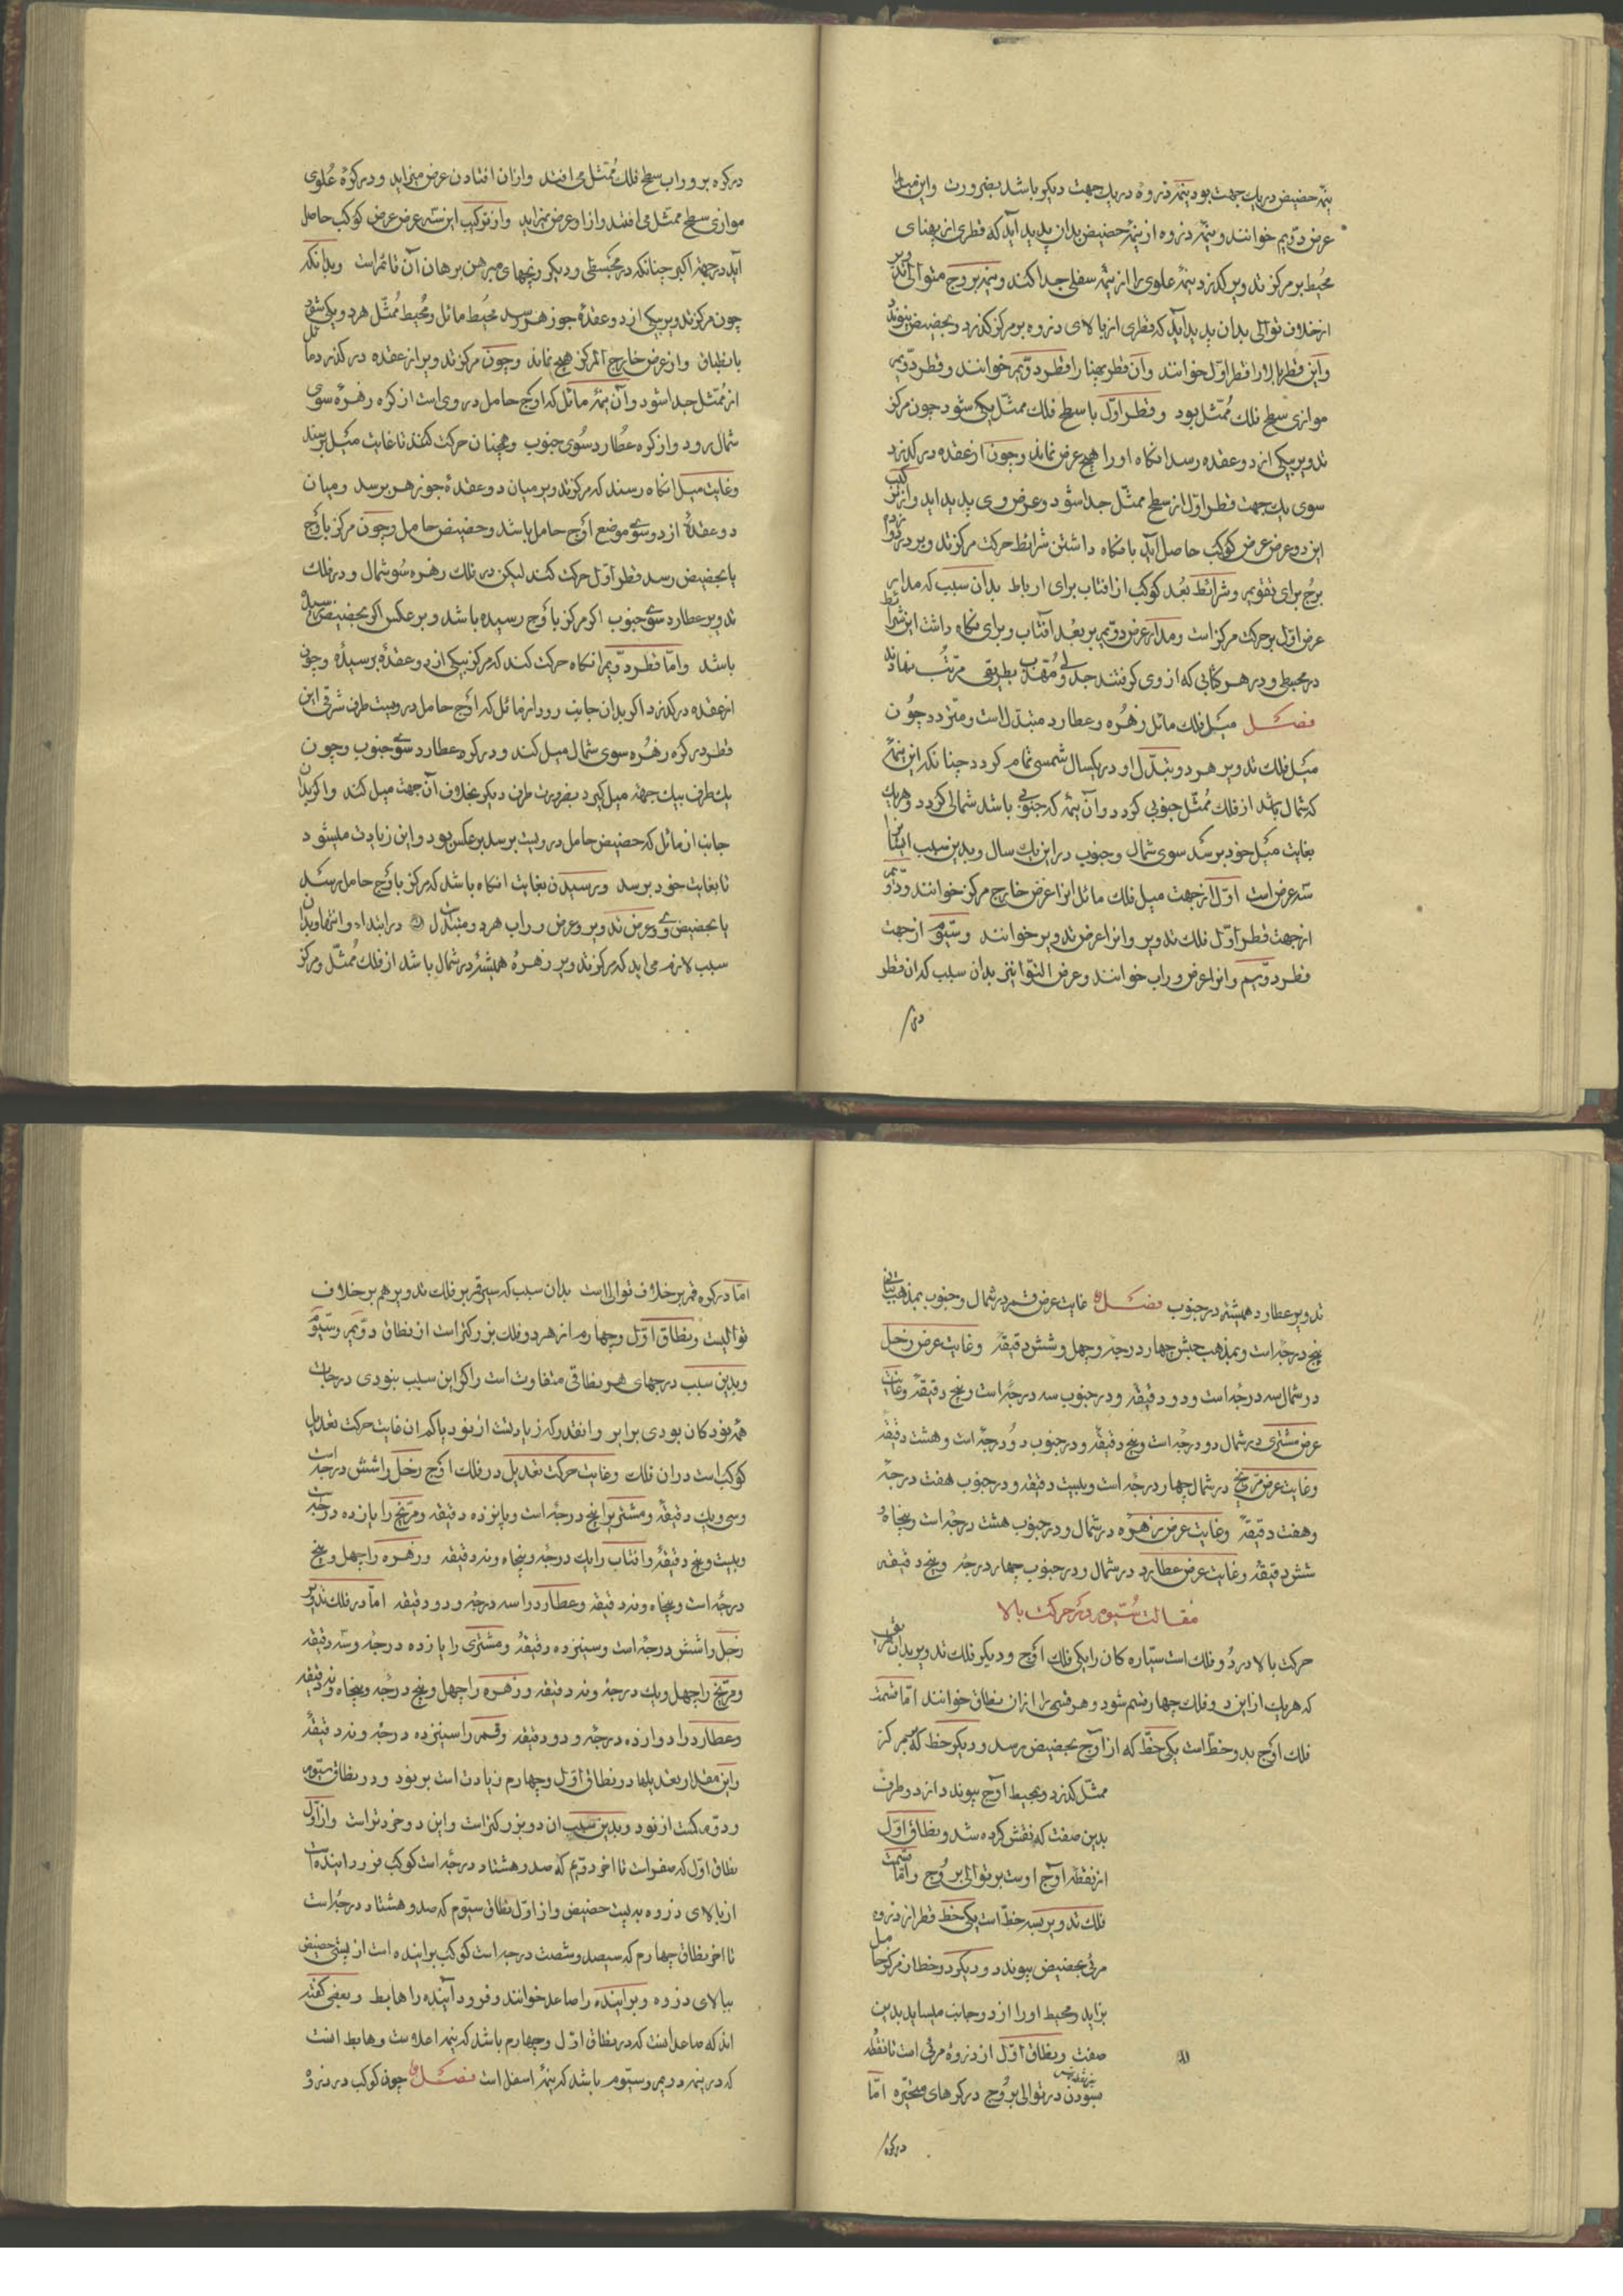 نیمهٔ حضیض در یك جهت بود نیمهٔ ذروه در یك جهت دیکر باشد بضرورت و این میل را
عرض دوّیم خوانند و نیمهٔ ذروه از نیمهٔ حضیض بدان پدید آید که قطری از پهنای
محُیط بر مرکز تدویر کذرد نیمهٔ علوی را از نیمهٔ سفلی جدا کند و نیمهٔ بروج متوالی
از خلاف توالی بدان پدید آید که قطری از بالای ذروه بر مرکز کذرد و بحضیض پیوندد
و این قطر را قطر اوّل خوانند و آن قطر پهنا را قطر دوّیم خوانند و قطر دوّیم
موازی سطح فلك مُمثّل بود و قطر اوّل با سطح فلك ممثّل یکی شود چون مرکز
تدویر بیکی از دو عقده رسد انکاه او را هیچ عرض نماند و چون از عقده در کذرد
سوی یك جهت قطر اوّل از سطح ممثّل جدا شود و عرض وی پدید اید و از ترکیب
این دو عرض عرض کوکب حاصل آید با نکاه داشتن شرائط حرکت مرکز تدویر در
برج برای تقویم و شرائط بُعد کوکب از افتاب برای ارباط بدان سبب که مدار
عرض اوّل بر حرکت مرکز است و مدار عرض دوّیم بر بعُد افتاب و برای نکاه داشت این شرائط
در محیط و در هر کتابی که از وی کرفتند جدولی مُقدّر بطریقی مرتّب نهادند
فصل میل فلك مائل زهُره و عطارد متبدّل است و متردد چُون
میل فلك تدویر هر دو و تبدّل او در یکسال شمسی تمام کردد چنانکه این نیمهٔ
که شمال باشد از فلك مُمثّل جنوبی کردد و آن نیمه که جنوبی باشد شمالی کردد و هر یك
بغایت میل خود برسد سوی شمال و جنوب در این یك سال و بدین سبب ایشانرا
سه عرض است اوّل از جهت میل فلك مائل انرا عرض خارج مرکز خوانند و دوّیم
از جهت قطر اوّل فلك تدویر و انرا عرض تدویر خوانند و سیّوم از جهت
قطر دوّیم و انرا عرض وراب خوانند و عرض التوا نیز بدان سبب که ان قطر
در کره بر وراب سطح فلك مُمثّل می افتد و ازان افتادن عرض میزاید و در کرهٔ عُلوی
موازی سطح ممثّل می افتد و ازاو عرض نمیزاید و از ترکیب این سه عرض عرض کوکب حاصل
آید در جهة اکبر چنانکه در مجسطی و دیکر زیجهای مبرهن برهان آن قائم است و بدانکه
چون مرکز تدویر بیکی از دو عقدهٔ جوزهر رسد محُیط مائل و محُیط مُمثّل هر دو یکی شود
بانطباق و از عرض خارج المرکز هیچ نماند و چون مرکز تدویر از عقده در کذرد مائل
از مُمثّل جدا شود و آن نیمهٔ مائل که اوج حامل در وی است از کره زهرهٔ سوی
شمال رود و از کره عطُارد سُوی جنوب و همچنان حرکت کنند تا غایت میَل برسند
و غایت میل انکاه رسند که مرکز تدویر میان دو عقدهٔ جوزهر برسد و میان
دو عقدهٔ از دو سُوی موضع اوج حامل باشد و حضیض حامل و چون مرکز باوج
یا بحضیض رسد قطر اوّل حرکت کند لیکن در فلك زهره سُو شمال و در فلك
تدویر عطارد سوی جنوب اکر مرکز باوج رسیده باشد و بر عکس اکر بحضیض رسیده
باشد و امّا قطر دوّیم انکاه حرکت کند که مرکز بیکی از دو عقدهٔ برسیده و چون
از عقده در کذرد اکر بدان جانب رود از مائل که اَوج حامل درویست طرف شرقی این
قطر در کره زهُره سوی شمال میل کند و در کره عطارد سوی جنوب و چون
یك طرف بیك جهة میل کیرد بضرورت طرف دیکر بخلاف آن جهت میل کند و اکر بدان
جانب از مائل که حضیض حامل درویست برسد بر عکس بود و این زیادت میشود
تا بغایت خود برسد و برسیدن بغایت انکاه باشد که مرکز باَوج حامل برسد
یا بحضیض وی و عرض تدویر و عرض وراب هر دو متبدّل در ابتداء و انتها و بدان
سبب لازم می اید که مرکز تدویر زهرهُ همیشهٔ در شمال باشد از فلك مُمثّل و مرکز
تدویر عطارد همیشه در جنوب فصل غایت عرض قمر در شمال و جنوب بمذهب بتانی
پنج درجه است و بمذهب حبش چهار درجهٔ و چهل و شش دقیقهٔ و غایت عرض زحل
در شمال سه درجُه است و دو دقیقهٔ و در جنوب سه درجهُ است و پنج دقیقهٔ و غایت
عرض مشتری در شمال دو درجُه است و پنج دقیقهٔ و در جنوب دوُ درجهٔ است و هشت دقیقهٔ
و غایت عرض مرّیخ در شمال چهار درجهُ است و بیست دقیقه و در جنوب هفت درجهٔ
و هفت دقیقهً و غایت عرض زهره در شمال و در جنوب هشت درجهُ است و پنجاه وُ
شش دقیقهٔ و غایت عرض عطارد در شمال و در جنوب چهار درجهُ و پنج دقیقه
مقالت سیّوم در حرکت بالا
حرکت بالا در دُو فلك است ستیاره کان را یکی فلك اَوج و دیکر فلك تدویر بدان تقریب
که هر یك از این دو فلك چهار قسم شود و هر قسمی را ازان نطاق خوانند امّا قسمت
فلك اَوج بدو خطّ است یکی خطّ که از آوج بحضیض برسد و دیکر خط که بر مرکز
ممثّل کذرد و بمحیط آوج پیوندد از دو طرف
بدین صفت که نقش کرده شد و نطاق اوّل
از نقطهٔ آوج اوست بر توالی برُوج و امّا قسمت
فلك تدویر بسه خطّ است یکی خط قطر از ذروه
مرئی بحضیض پیوندد و دیکر دو خط از مرکز حامل
بزاید و محیط او را از دو جانب میساید بدین
صفت و نطاق اوّل از ذروهٔ مرئی است تا نقطهٔ
بسودن در توالی برُوج در کرهای متحیّره امّا
در کره
امّا در کره قمر بر خلاف توالی است بدان سبب که سیر قمر بر فلك تدویر هم بر خلاف
توالیست و نطاق اوّل و چهارم از هر دو فلك بزرکتر است از نطاق دوّیم و سیّوم
و بدین سبب درجهای هر نطاقی متفاوت است و اکر این سبب نبودی درجات
همه نود کان بودی برابر و انقدر که زیادتست از نود یا کم ان غایت حرکت تعدیل
کوکب است دران فلك و غایت حرکت تعدیل در فلك اوج زحل را شش درجه است
و سی و یك دقیقهٔ و مشتری را پنج درجهٔ است و پانزده دقیقه و مرّیخ را یازده درجه
و بیست و پنج دقیقهٔ و افتاب را یك درجهٔ و پنجاه و نه دقیقهٔ و زهره را چهل و پنج
درجه است و پنجاه و نه دقیقهٔ و عطارد را سه درجهٔ و دو دقیقه امّا در فلك تدویر
زحل را شش درجهٔ است و سیزده دقیقهُ و مشتری را یازده درجهٔ و سه دقیقه
و مرّیخ را چهل و یك درجهٔ و نه دقیقه و زهره را چهل و پنج درجهُ و پنجاه و نه دقیقه
و عطارد را دوازده درجهٔ و دو دقیقه و قمر را سیزده درجهٔ و نه دقیقهٔ
و این مقدار تعدیلها در نطاق اوّل و چهارم زیادت است بر نود و در نطاق سیّوم
و دوّم کمست از نود و بدین سبب ان دو بزرکتر است و این دو خردتر است و از اوّل
نطاق اوّل که صفر است تا اخر دوّیم که صد و هشتاد درجهٔ است کوکب فرود اینده است
از بالای ذروه به پست حضیض و از اوّل نطاق سیّوم که صد و هشتاد درجهٔ است
تا اخر نطاق چهارم که سیصد و شصت درجه است کوکب براینده است از پستی حضیض
ببالای ذروه و براینده را صاعد خوانند و فرود آینده را هابط و بعضی کفته
اند که صاعد انست که در نطاق اوّل و چهارم باشد که نیمهٔ اعلاست و هابط انست
که در نیمه دوّیم و سیّوم باشد که نیمهٔ اسفل است فصل چون کوکب در ذروه